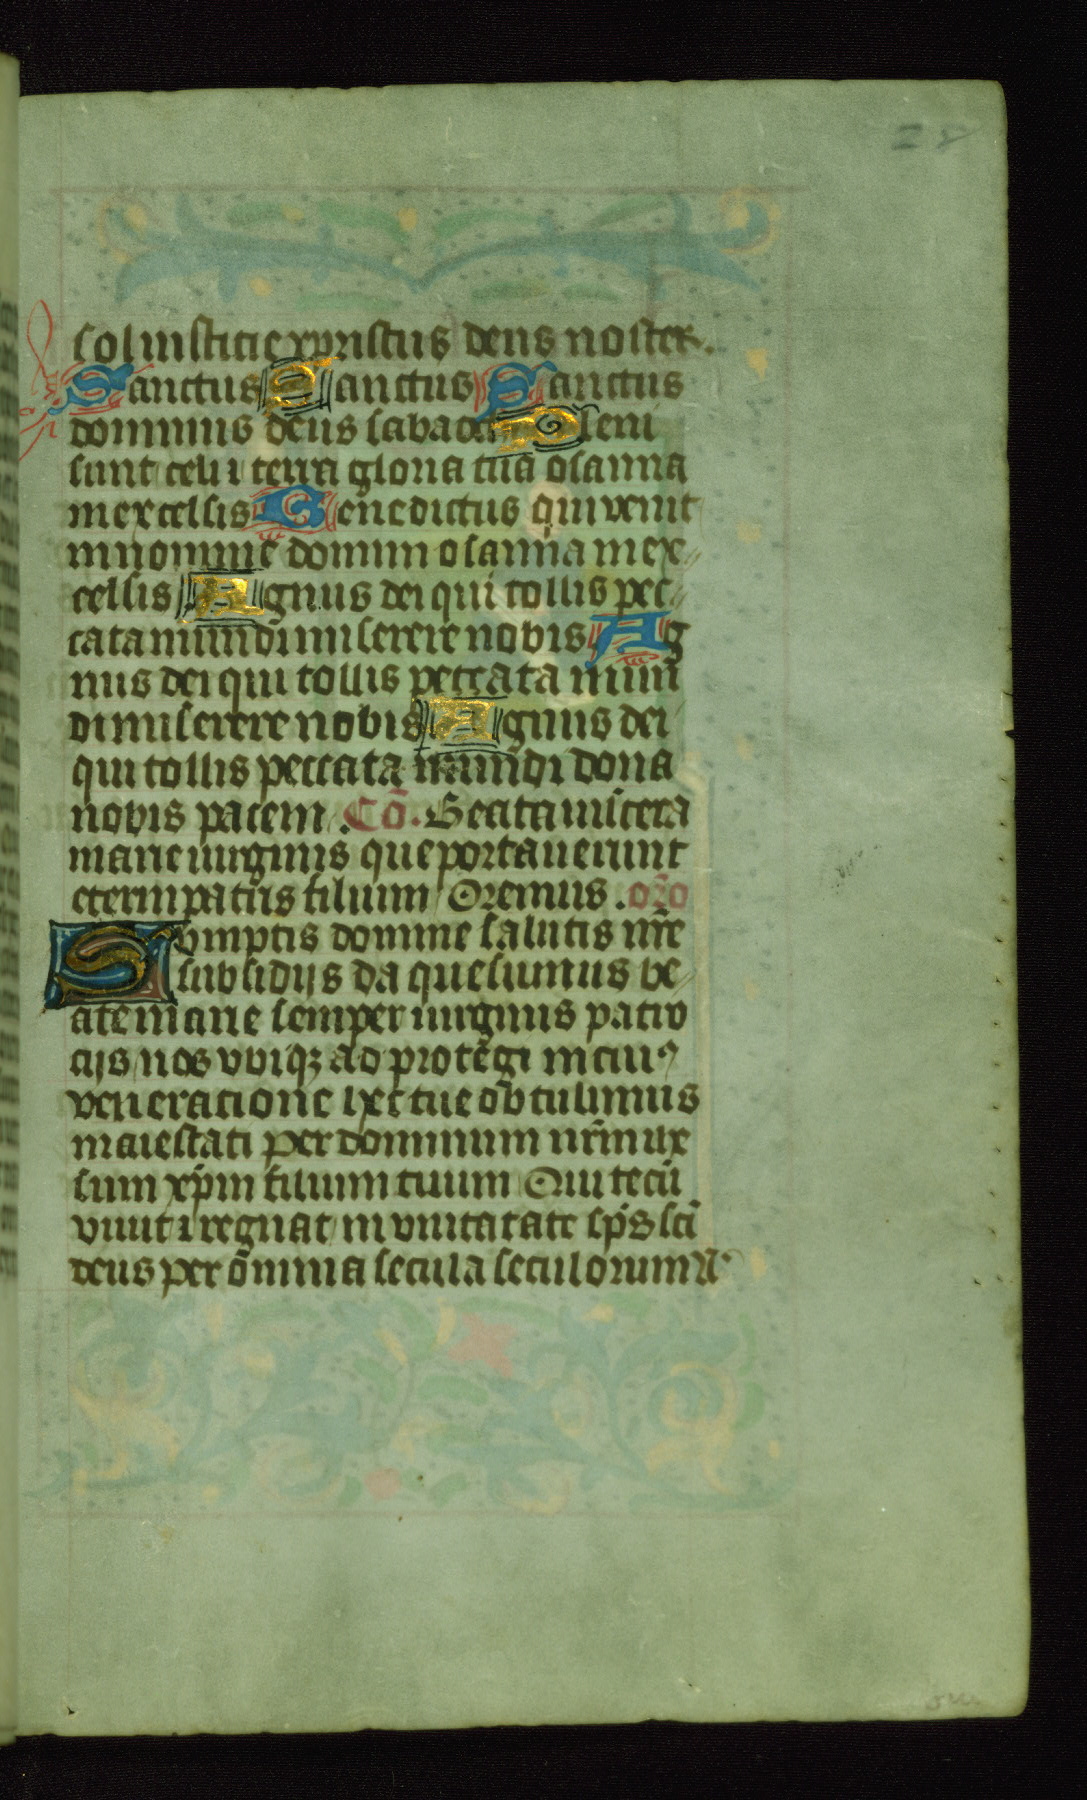 28
sol iusticie xpristus deus noster.
Sanctus Sanctus Sanctus
dominus deus sabaoth Pleni
sunt celi ⁊ terra gloria tua osanna
in excelsis Benedictus qui venit
in nomine domini osanna in ex
celsis Agnus dei qui tollis pec
cata mundi miserere nobis Ag
nus dei qui tollis peccata mun
di miserere nobis Agnus dei
qui tollis peccata mundi dona
nobis pacem. Cō. Beata uiscera
marie uirginis que portauerunt
eterni patris filium Oremus. or̄o
Sumptis domine salutis nr̄e
subsidijs da quesumus be
ate marie semper uirginis patro
cijs nos vbiqꝫ ad protegi in cuiꝰ
veneratione hec tue obtulimus
maiestati Per dominum nr̄m ihe
sum xp̄m filium tuum Qui tecū
viuit ⁊ regnat in vnitatate sp̄s sc̄i
deus per omnia secula seculorum